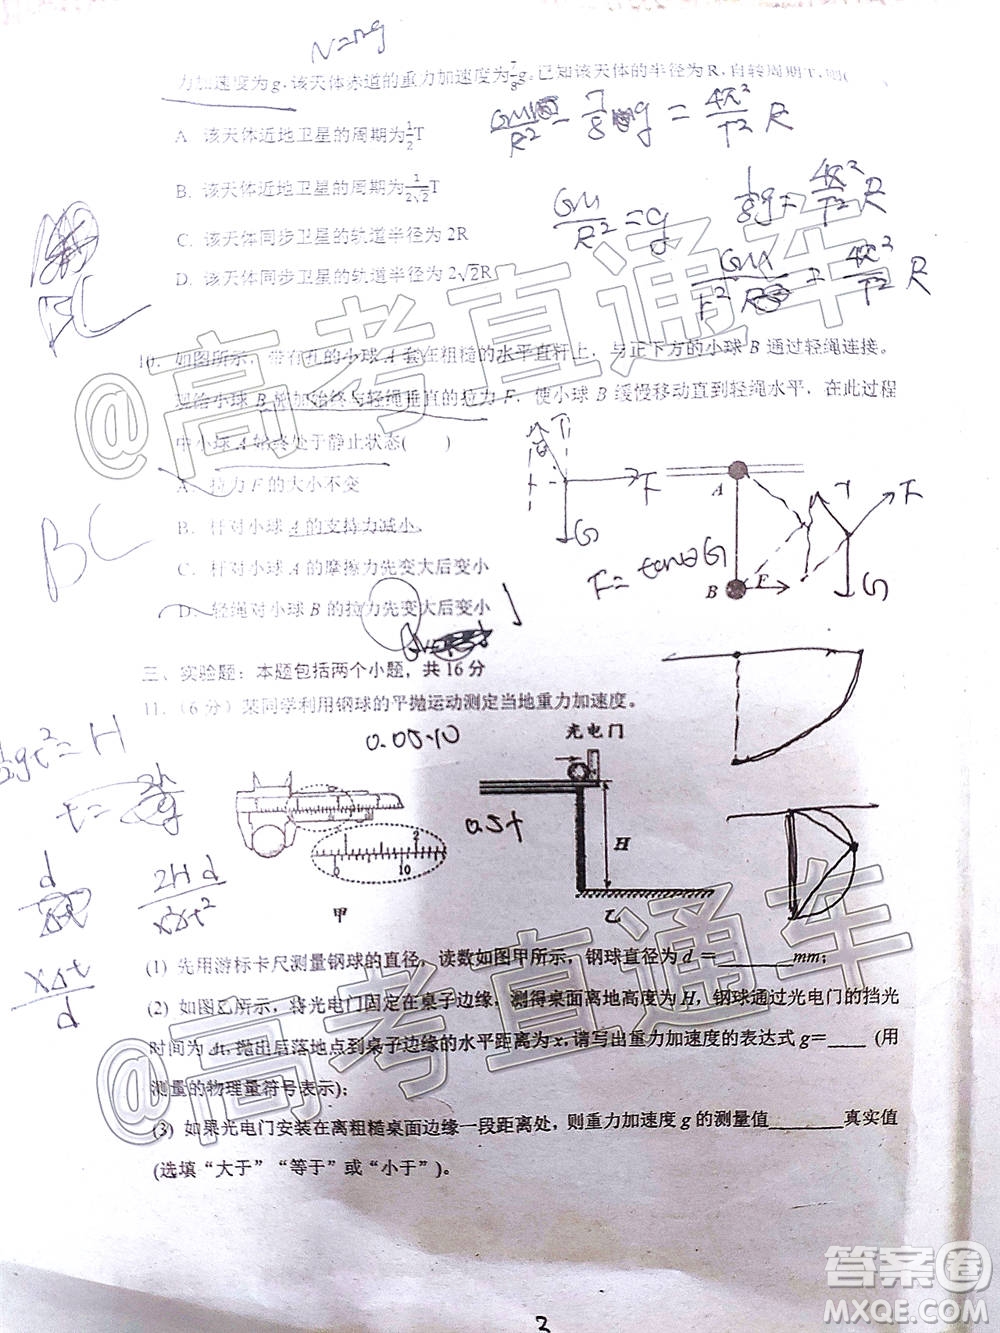 N=mg
力加速度为g,该天体赤道的重力加速度为7/8g。已知该天体的半径为R,自转周期T,则(
A. 该天体近地卫星的周期为1/2T
B. 该天体近地卫星的周期为1/(2√2)T
C. 该天体同步卫星的轨道半径为2R
D. 该天体同步卫星的轨道半径为2√2R
GM/R² = g
1/8g = 4π²/T² R
BC
10. 如图所示,带有孔的小球A套在粗糙的水平直杆上,与正下方的小球B通过轻绳连接。
现给小球B施加始终与轻绳垂直的拉力F,使小球B缓慢移动直到轻绳水平,在此过程
中小球A始终处于静止状态( )
A. 拉力F的大小不变
B. 杆对小球A的支持力减小
C. 杆对小球A的摩擦力先变大后变小
D. 轻绳对小球B的拉力先变大后变小
BC
T
θ
F
G
A
B
F
T
F
G
F=tanθG
三、实验题:本题包括两个小题,共16分
11.(6分)某同学利用钢球的平抛运动测定当地重力加速度。
0.05·10
光电门
H
乙
0 1 2
0 10
甲
(1) 先用游标卡尺测量钢球的直径,读数如图甲所示,钢球直径为d=________mm;
(2) 如图乙所示,将光电门固定在桌子边缘,测得桌面离地高度为H,钢球通过光电门的挡光
时间为Δt,抛出后落地点到桌子边缘的水平距离为x,请写出重力加速度的表达式g=____ (用
测量的物理量符号表示);
(3) 如果光电门安装在离粗糙桌面边缘一段距离处,则重力加速度g的测量值________真实值
(选填“大于”“等于”或“小于”)。
xΔt/d
3
@高考直通车
@高考直通车
答案圈
MXQE.COM